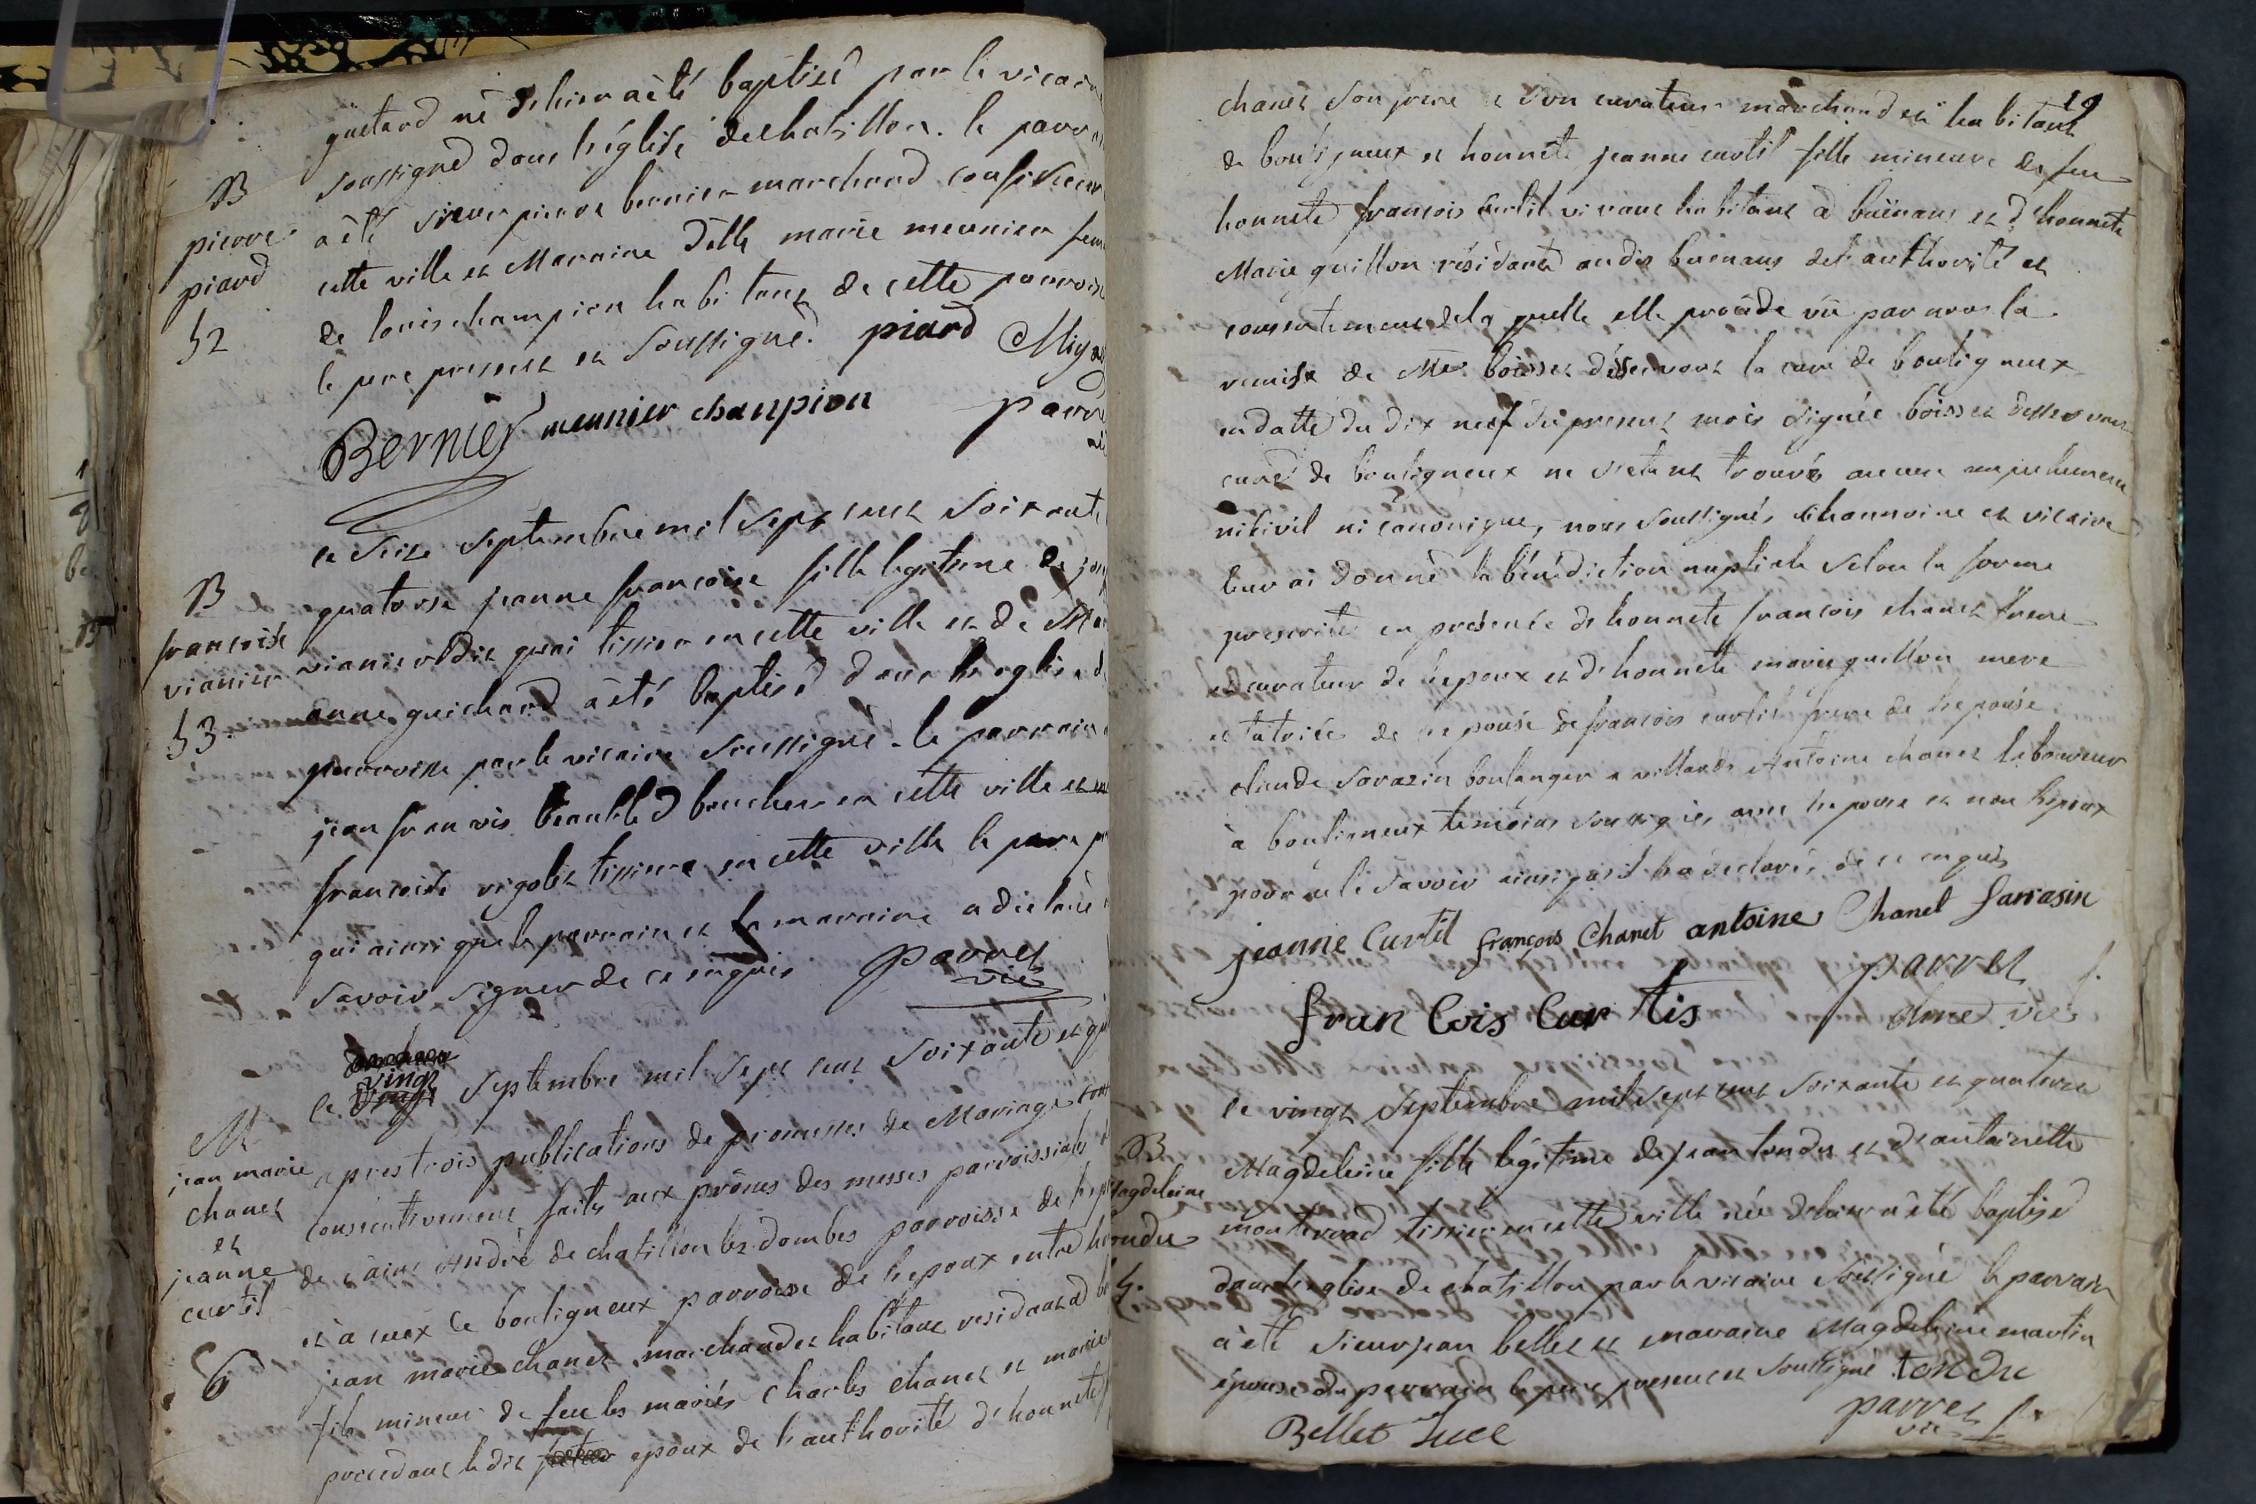 guetard né d'hier a èté baptisé par le vicaire
soussigné dans l'église de chatillon. le parrain
B
pierre
piard
52
a èté sieur pierre bernier marchand confiseur
cette ville et Maraine d'elle marie meunier femme
de louis champion habitans de cette parroisse
le pere present et soussigné. piard Mig
Bernier meunier chanpion parve
le seize septembre mil sept cent soixante
B
francoise
vianier
53.
quatorse jeanne francoise fille legitime de jos
vianier dit quai tissier en cette ville et de Ma
anne guichard a èté baptisé dans l'eglise de
parroisse par le vicaire soussigné. le parrain
jean francois beaubled boucher en cette ville et
francoise rigolet tissiere en cette ville le pere
qui ainsi que le parrain et la maraine a declaré
savoir signer de ce enquis parvet
vic
le vingt septembre mil sept cent soixante et qu
M
jean marie
chanet
et
jeanne
curtil
6
apres trois publications de promesses de Mariage
consecutivement faites aux prônes des messes parroissiales
de saint André de chatillon les dombes parroisse de l'ep
et a ceux de bouligneux parroisse de l'epoux entre
jean marie chanet marchand et habitant residant a
fils mineur de feu les mariés Charles chanet et marie
procedant le dit epoux de l'authorité d'honnete
19
chanet son frere et son curateur marchand et habitant
de bouligneux et honnete jeanne curtil fille mineure de feu
honnete francois Curtil vivant habitant a buënans et d'honnete
Marie guillon résidante audit buënans de l'authorité et
consentement de la quelle elle procède vû par nous la
remise de Mre boisset desservant la cure de bouligneux
en datte du dix neuf du present mois signée boisset desservant
curé de bouligneux ne s'etant trouvé aucun empechement
ni civil ni canonique, nous soussignés chanoine et vicaire
leur ai donné la bénédiction nuptiale selon la forme
prescrite en presence de honnete francois chanet frere
et curateur de l'epoux et d'honnete marie guillon mere
et tutrice de l'epouse de francois curtil frere de l'epouse
claude sarazin boulanger a villards Antoine chanet laboureur
à bouligneux temoins soussignés avec l'epouse et non l'epoux
pour ne le savoir ainsi qu'il l'a declaré de ce enquis
jeanne Curtil françois Chanet antoine Chanet sarrasin
fran Cois Cur tis parvet
chne vic
le vingt septembre mil sept cent soixante et quatorse
B
Magdeleine
tondu
5.
Magdeleine fille légitime de jean tondu et d'antoinette
monterrad tissier en cette ville née d'hier a èté baptisé
dans l'eglise de chatillon par le vicaire soussigné le parrain
a èté sieur jean bellet et maraine Magdeleine martin
épouse du parrain le pere present et soussigné tondu
Bellet Luce parvet
vic